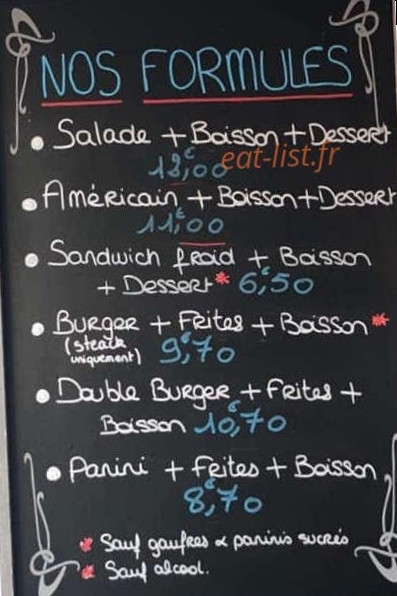 NOS FORMULES
• Salade + Boisson + Dessert
eat-list.fr
• Américain + Boisson + Dessert
11€,00
• Sandwich froid + Boisson
+ Dessert * 6€,50
• Burger + Frites + Boisson *
(steack
uniquement) 9€,70
• Double Burger + Frites +
Boisson 10€,70
• Panini + Frites + Boisson
8€,70
* Sauf gaufres & paninis sucrés
* Sauf alcool.